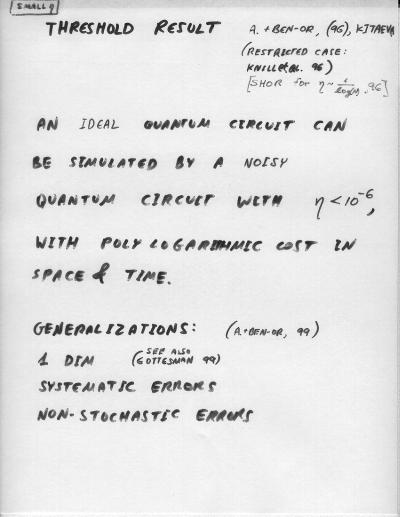 SMALL η
THRESHOLD RESULT A. + BEN-OR, (96), KITAEV
(RESTRICTED CASE:
KNILL et al. 96)
[SHOR for η ~ 1/log(n) .96]
AN IDEAL QUANTUM CIRCUIT CAN
BE SIMULATED BY A NOISY
QUANTUM CIRCUIT WITH η < 10^-6,
WITH POLYLOGARITHMIC COST IN
SPACE & TIME.
GENERALIZATIONS: (A. + BEN-OR, 99)
1 DIM (SEE ALSO GOTTESMAN 99)
SYSTEMATIC ERRORS
NON-STOCHASTIC ERRORS